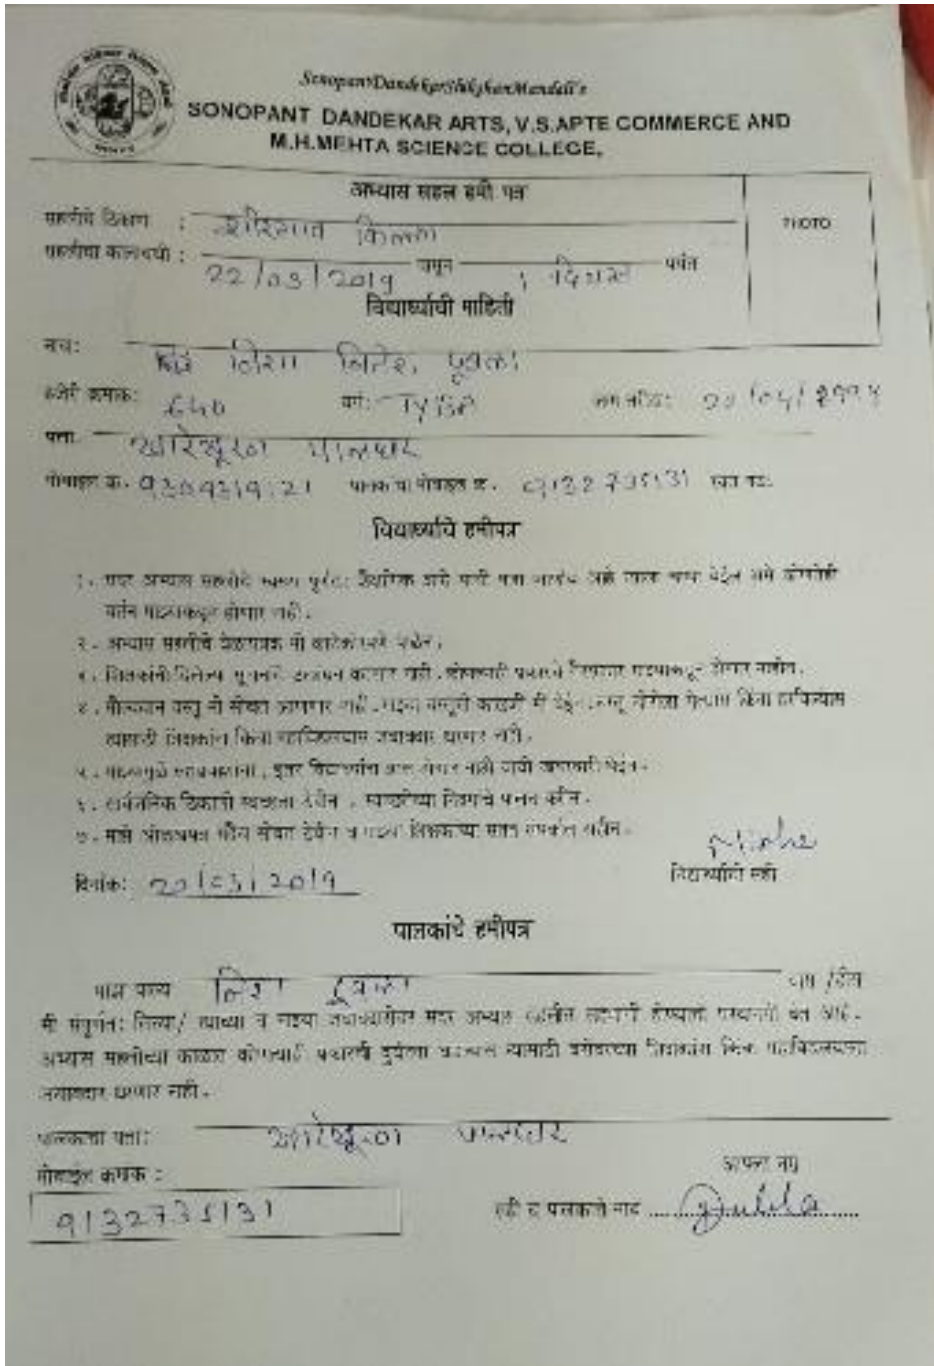 SonopantDandekarShikshanMandali's
SONOPANT DANDEKAR ARTS, V.S.APTE COMMERCE AND
M.H.MEHTA SCIENCE COLLEGE,
अभ्यास सहल हमी पत्र
सहलीचे ठिकाण : शीरगाव किल्ला
PHOTO
सहलीचा कालावधी : 22/03/2019 पासून १ दिवस पर्यंत
विद्यार्थ्याची माहिती
नाव: निशा
हजेरी क्रमांक: 640 वर्ग: TYBA
पत्ता पालघर
मोबाइल क्र. पालकाचा मोबाइल क्र. 9132735131
विद्यार्थ्याचे हमीपत्र
वर्तन माझ्याकडून होणार नाही.
२. अभ्यास सहलीचे वेळापत्रक मी काटेकोरपणे पाळेन.
३. शिक्षकांनी दिलेल्या सूचनांचे उल्लंघन करणार नाही. कोणत्याही प्रकारचे गैरप्रकार माझ्याकडून होणार नाहीत.
४. मौल्यवान वस्तू मी सोबत आणणार नाही. माझ्या वस्तूंची काळजी मी घेईन. वस्तू चोरीला गेल्यास किंवा हरविल्यास
त्यासाठी शिक्षकांना किंवा महाविद्यालयास जबाबदार धरणार नाही.
५. माझ्यामुळे इतर विद्यार्थ्यांना त्रास होणार नाही याची खबरदारी घेईन.
६. सार्वजनिक ठिकाणी स्वच्छता ठेवीन, स्वच्छतेच्या नियमांचे पालन करीन.
७. माझे ओळखपत्र सोबत ठेवीन व माझ्या शिक्षकांच्या सतत संपर्कात राहीन.
दिनांक: 20/03/2019 विद्यार्थ्याची सही
पालकांचे हमीपत्र
माझा पाल्य निशा
मी संपूर्णतः तिच्या/ त्याच्या व माझ्या जबाबदारीवर सदर अभ्यास सहलीत सहभागी होण्याची परवानगी देत आहे.
अभ्यास सहलीच्या काळात कोणत्याही प्रकारची दुर्घटना घडल्यास त्यासाठी बरोबरच्या शिक्षकांस किंवा महाविद्यालयास
जबाबदार धरणार नाही.
पालकाचा पत्ता: पालघर
मोबाईल क्रमांक :
आपला नम्र
9132735131
सही व पालकाचे नाव